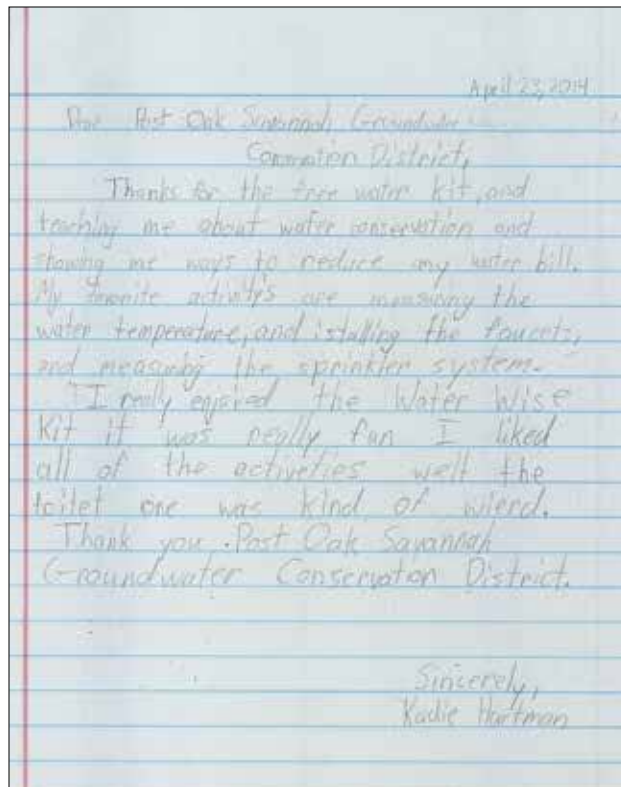 April 23, 2014
Dear Post Oak Savannah Groundwater
Conservation District,
Thanks for the free water kit, and
teaching me about water conservation and
showing me ways to reduce my water bill.
My favorite activity's are measuring the
water temperature, and istalling the faucets,
and measuring the sprinkler system.
I really enjoied the Water Wise
Kit it was really fun I liked
all of the activeties well the
toilet one was kind of wierd.
Thank you Post Oak Savannah
Groundwater Conservaton District.
Sincerely,
Kadie Hartman